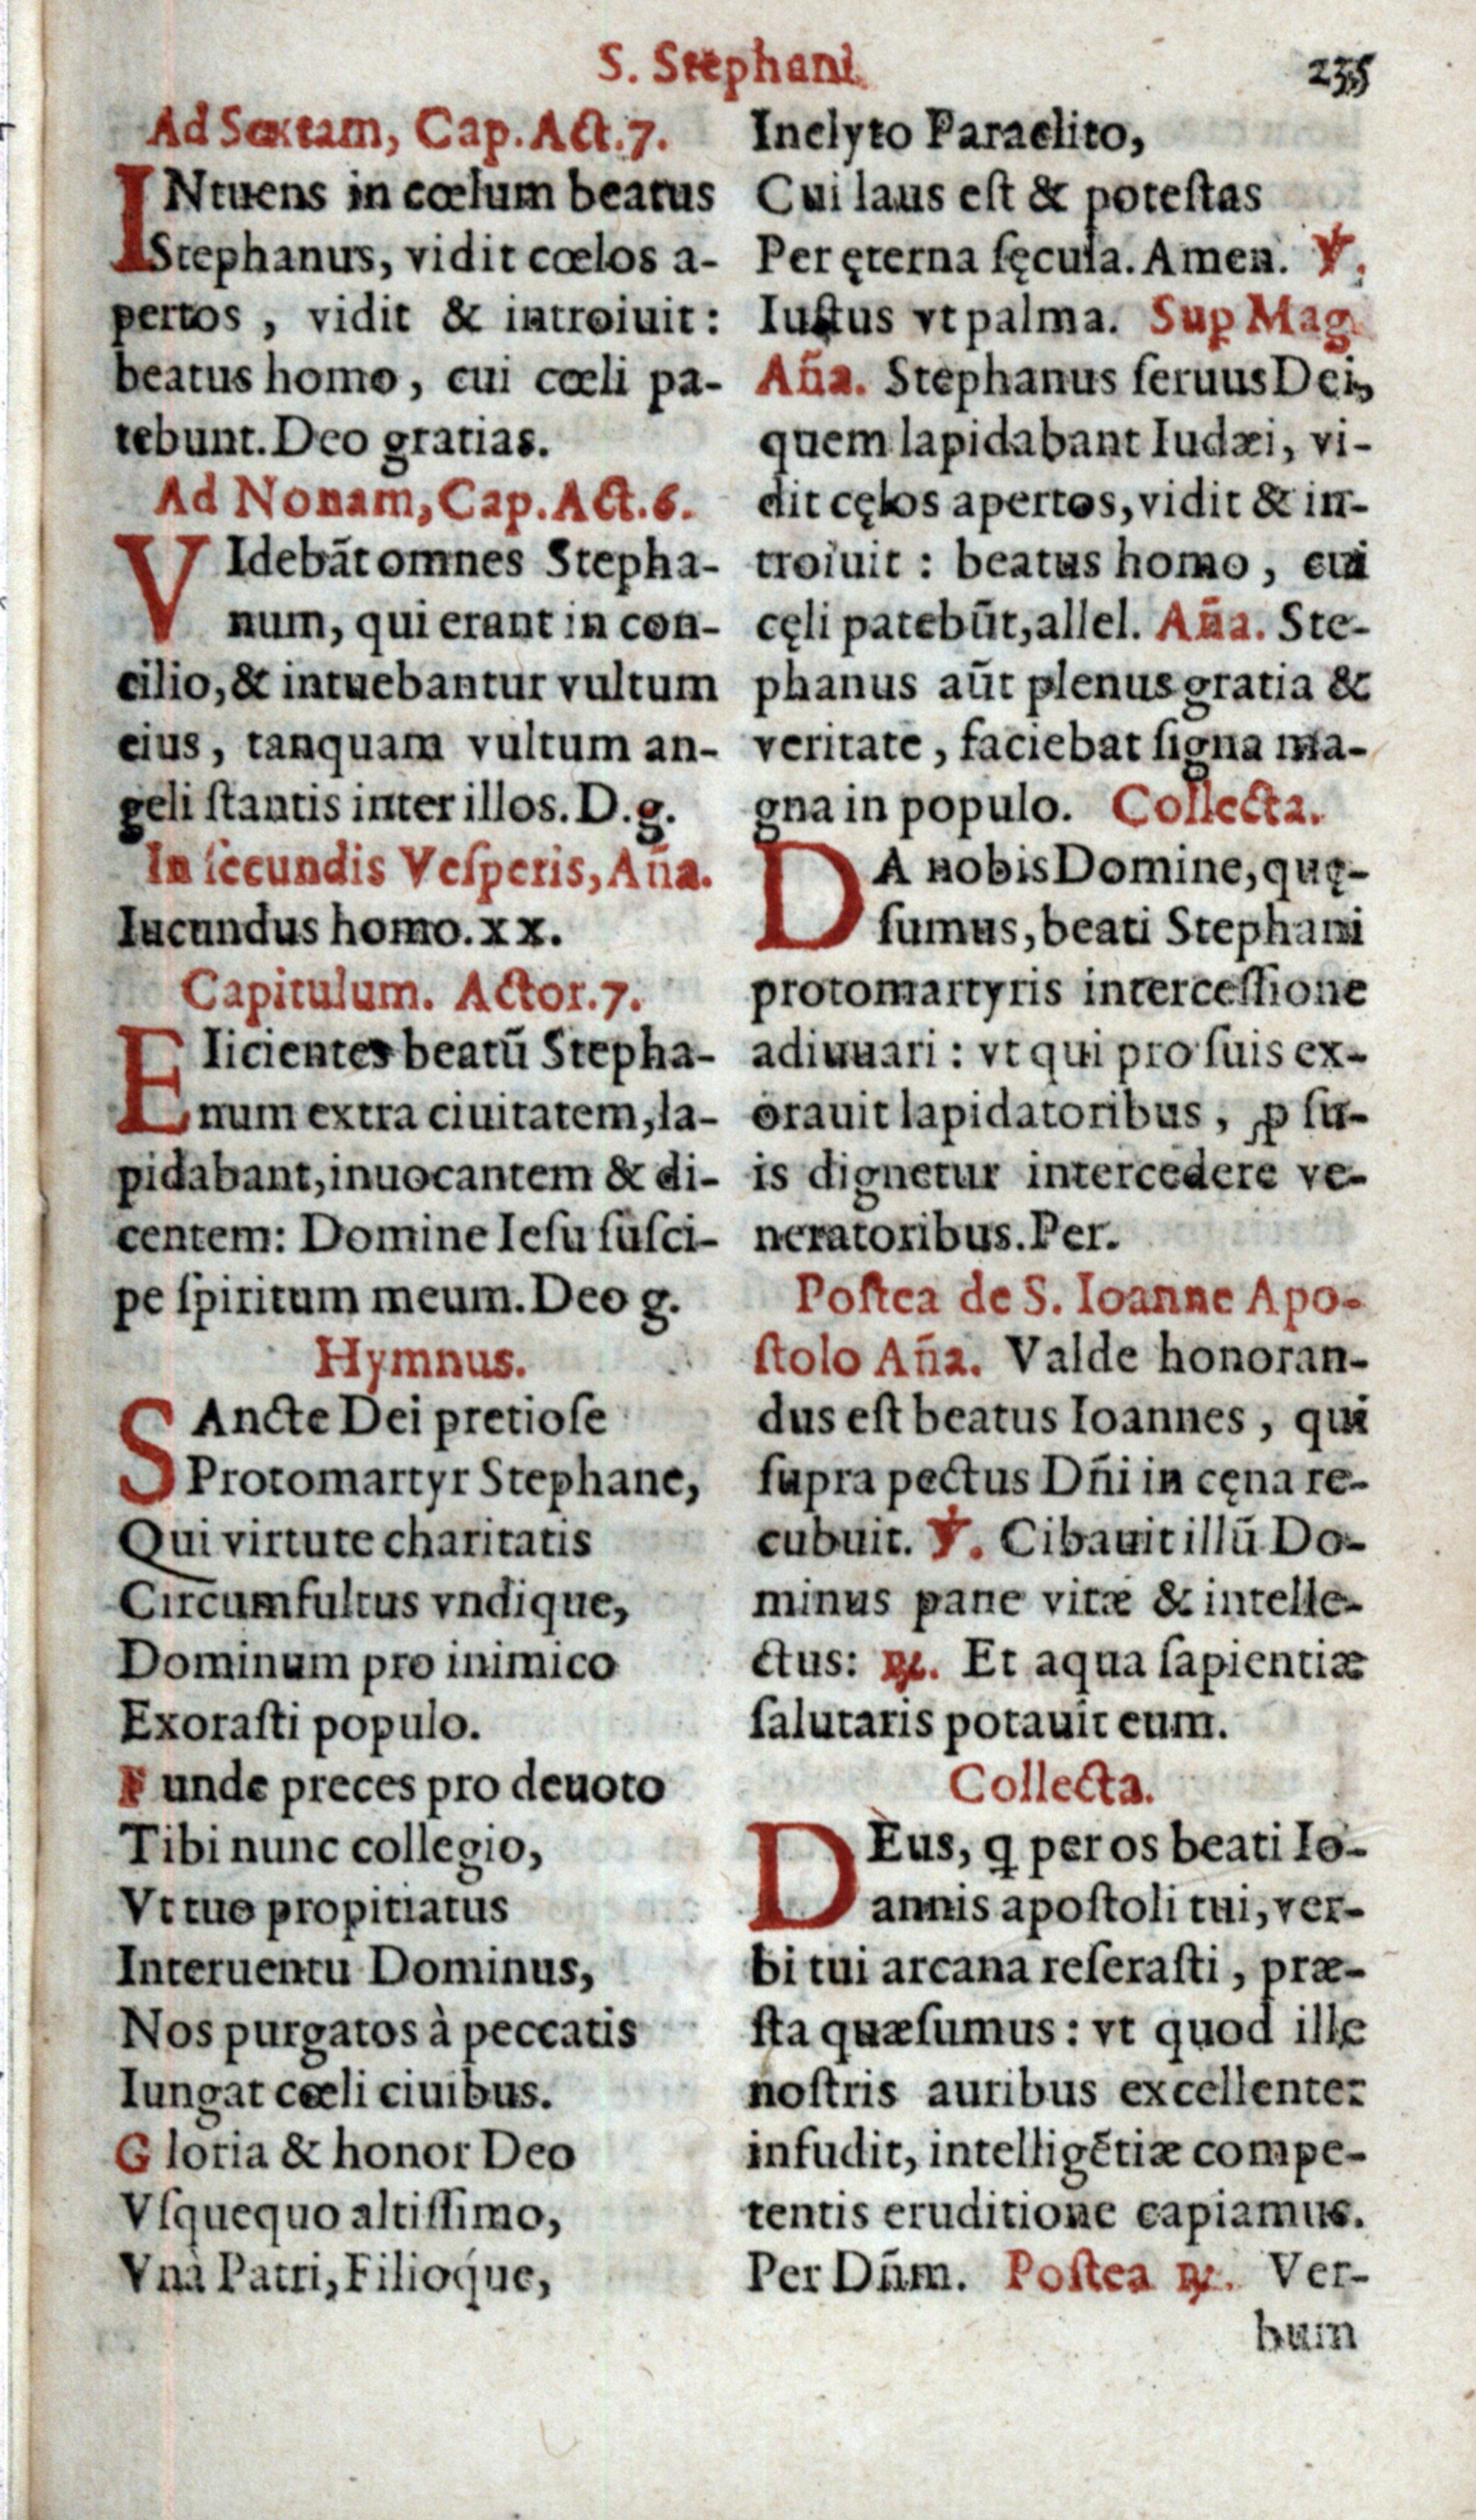 S. Stephani
235
Ad Sextam, Cap. Act. 7.
INtuens in cœlum beatus
Stephanus, vidit cœlos a-
pertos, vidit & introiuit:
beatus homo, cui cœli pa-
tebunt. Deo gratias.
Ad Nonam, Cap. Act. 6.
VIdebāt omnes Stepha-
num, qui erant in con-
cilio, & intuebantur vultum
eius, tanquam vultum an-
geli ſtantis inter illos. D. g.
In ſecundis Veſperis, Añа.
Iucundus homo. xx.
Capitulum. Actor. 7.
EIicientes beatū Stepha-
num extra ciuitatem, la-
pidabant, inuocantem & di-
centem: Domine Ieſu ſuſci-
pe ſpiritum meum. Deo g.
Hymnus.
SAncte Dei pretioſe
Protomartyr Stephane,
Qui virtute charitatis
Circumfultus vndique,
Dominum pro inimico
Exoraſti populo.
Funde preces pro deuoto
Tibi nunc collegio,
Vt tuo propitiatus
Interuentu Dominus,
Nos purgatos à peccatis
Iungat cœli ciuibus.
Gloria & honor Deo
Vſquequo altiſſimo,
Vnà Patri, Filioque,
Inclyto Paraclito,
Cui laus eſt & poteſtas
Per ęterna ſęcula. Amen. ℣.
Iuſtus vt palma. Sup Mag.
Aña. Stephanus ſeruus Dei,
quem lapidabant Iudæi, vi-
dit cęlos apertos, vidit & in-
troiuit: beatus homo, cui
cęli patebūt, allel. Aña. Ste-
phanus aūt plenus gratia &
veritate, faciebat ſigna ma-
gna in populo. Collecta.
DA nobis Domine, quę-
ſumus, beati Stephani
protomartyris interceſſione
adiuuari: vt qui pro ſuis ex-
orauit lapidatoribus, ꝓ ſu-
is dignetur intercedere ve-
neratoribus. Per.
Poſtea de S. Ioanne Apo-
ſtolo Aña. Valde honoran-
dus eſt beatus Ioannes, qui
ſupra pectus Dñi in cęna re-
cubuit. ℣. Cibauit illū Do-
minus pane vitæ & intelle-
ctus: ℟. Et aqua ſapientiæ
ſalutaris potauit eum.
Collecta.
DEus, ꝗ per os beati Io-
annis apoſtoli tui, ver-
bi tui arcana reſeraſti, præ-
ſta quæſumus: vt quod ille
noſtris auribus excellenter
infudit, intelligētiæ compe-
tentis eruditione capiamus.
Per Dñm. Poſtea ℟. Ver-
bum